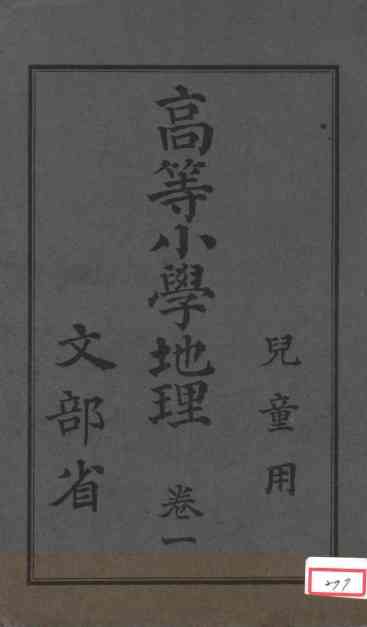 兒童用
高等小學地理 卷一
文部省